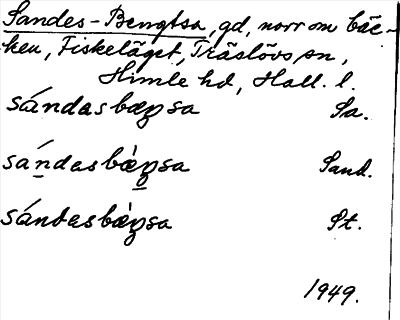 Sandes-Bengtsa, gd, norr om bäc-
ken, Fiskeläget, Träslövs sn,
Himle hd, Hall. l.
sándasbæŋsa Sa.
sándasbæ̀ŋsa Sand.
sándasbæ̀ŋsa St.
1949.